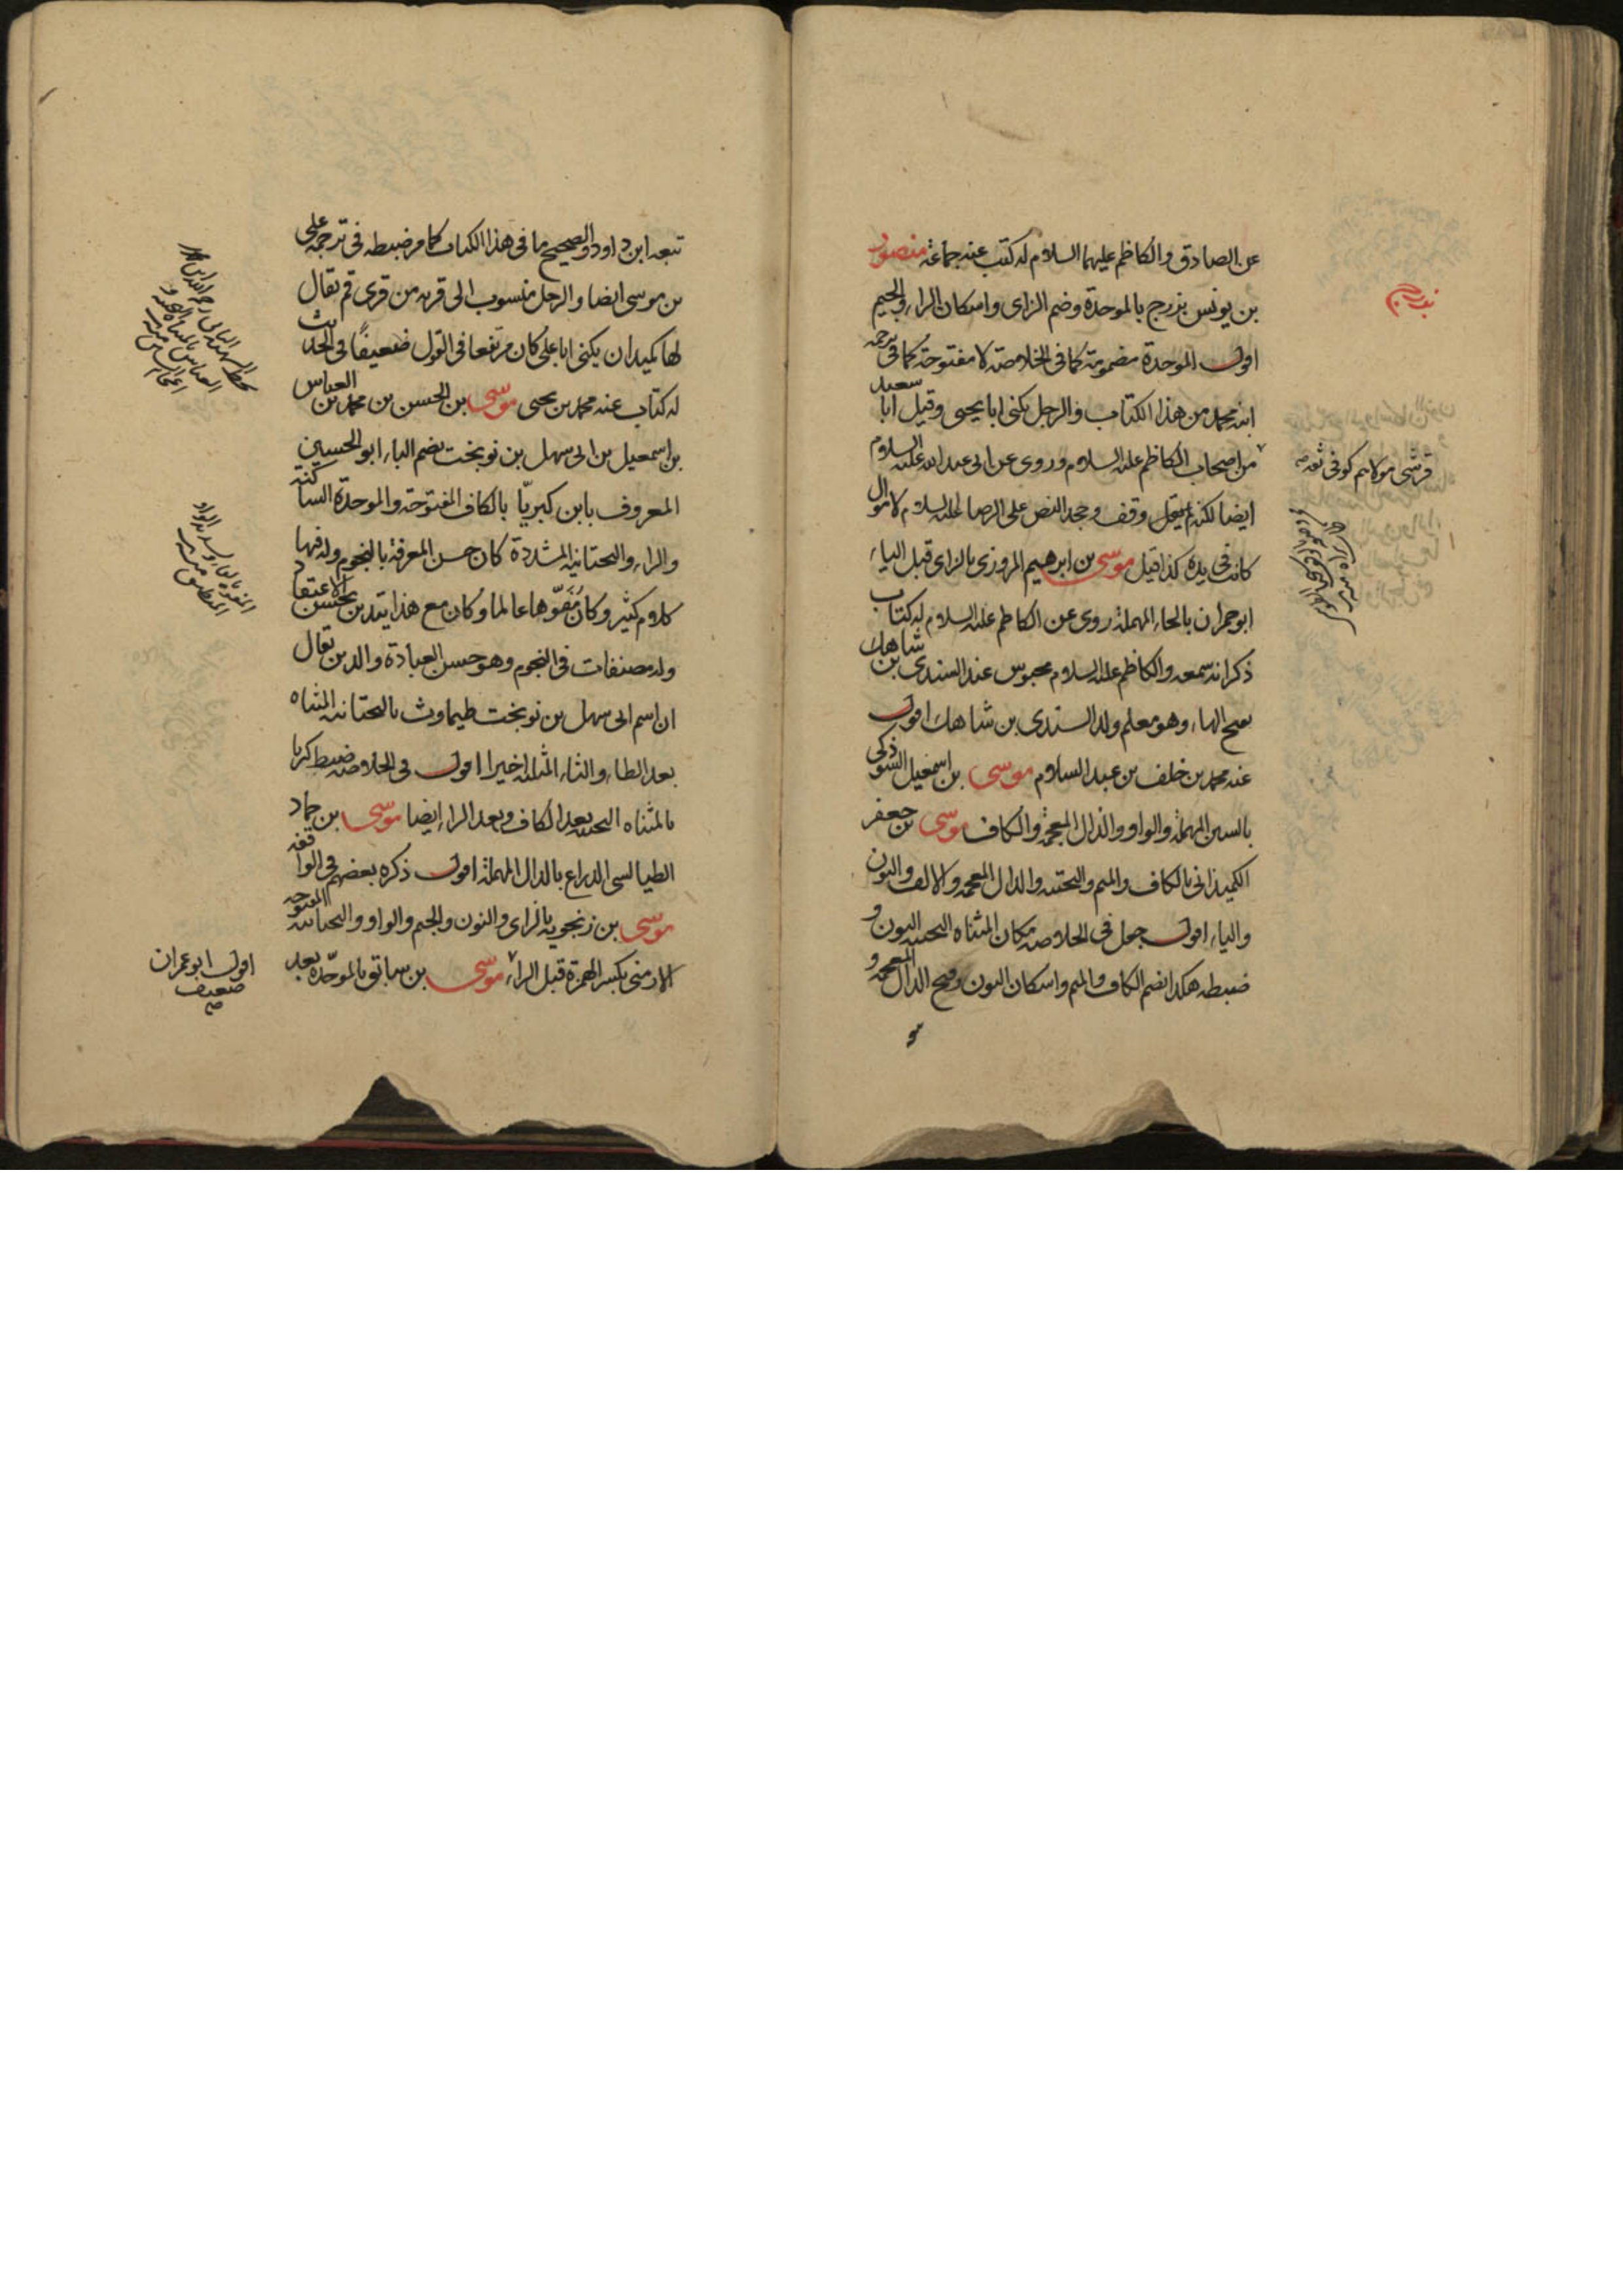 عن الصادق والكاظم عليهما السلام له كتب عنه جماعة منصور
بن يونس بزرج بالموحدة وضم الزاى واسكان الراء والجيم
اقول الموحدة مضمومة كما فى الخلاصة لا مفتوحة كما فى ترجمة
ابنه محمد من هذا الكتاب والرجل يكنى ابا يحيى وقيل ابا سعيد
من اصحاب الكاظم عليه السلام وروى عن ابى عبد الله عليه السلام
ايضا لكنه لم يقل وقف وجحد النص على الرضا عليه السلام لاموال
كانت فى يده كذا قيل موسى بن ابرهيم المروزى بالزاى قبل الياء
ابو حمران بالحاء المهملة روى عن الكاظم عليه السلام له كتاب
ذكر انه سمعه والكاظم عليه السلام محبوس عند السندى بن شاهك
بفتح الهاء وهو معلم ولد السندى بن شاهك اقول
عنه محمد بن خلف بن عبد السلام موسى بن اسمعيل السوذكى
بالسين المهملة والواو والذال المعجمة والكاف موسى بن جعفر
الكميذانى بالكاف والميم والتحتية والذال المعجمة والالف والنون
والياء اقول جعل فى الخلاصة مكان المثناة التحتية النون و
ضبطه هكذا بضم الكاف والميم واسكان النون وفتح الذال المعجمة و
قرشى مولاهم كوفى ثقة صه
تبعه ابن داود والصحيح ما فى هذا الكتاب كما مر ضبطه فى ترجمة على
بن موسى ايضا والرجل منسوب الى قرية من قرى قم يقال
لها كميذان يكنى ابا على كان مرتفعا فى القول ضعيفًا فى الحديث
له كتاب عنه محمد بن يحيى موسى بن الحسن بن محمد بن العباس
بن اسمعيل بن ابى سهل بن نوبخت بضم الباء ابو الحسين
المعروف بابن كبريّا بالكاف المفتوحة والموحدة الساكنة
والراء والتحتانية المشددة كان حسن المعرفة بالنجوم وله فيها
كلام كثير وكان مُفَوّها عالما وكان مع هذا يتدين بحسن الاعتقاد
وله مصنفات فى النجوم وهو حسن العبادة والدين يقال
ان اسم ابى سهل بن نوبخت طيماوث بالتحتانية المثناة
بعد الطاء والثاء المثلثة اخيرا اقول فى الخلاصة ضبط كريا
بالمثناة التحتية بعد الكاف وبعد الراء ايضا موسى بن حماد
الطيالسى الدراع بالدال المهملة اقول ذكره بعضهم فى الواقفة
موسى بن زنجويه بالزاى والنون والجيم والواو والتحتانية المفتوحة
الارمنى بكسر الهمزة قبل الراء موسى بن سابق بالموحّدة بعد
اقول ابو عمران
ضعيف
صه